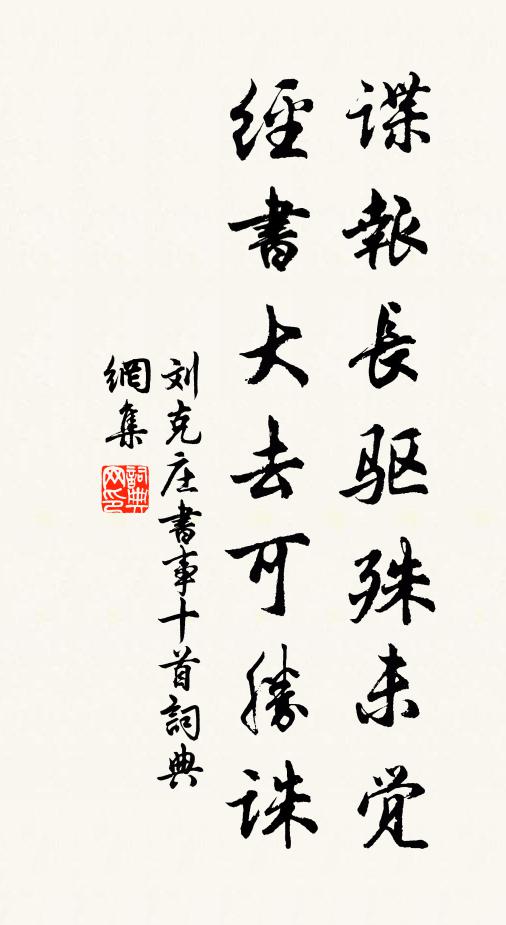 谍報長驱殊未觉
經書大去可勝誅
刘克庄書事十首詞典
網集
詞典网印